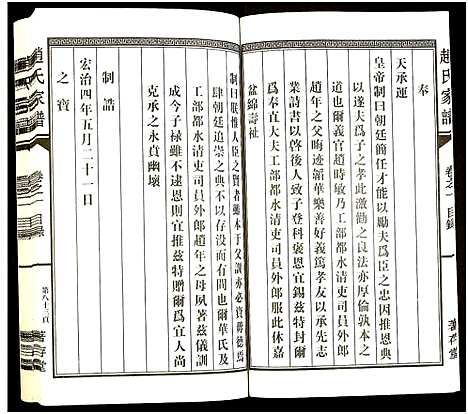 趙氏家譜
卷之一 目錄
著存堂
奉
天承運
皇帝制曰朝廷簡任才能以勵夫為臣之忠因推恩典
以遂夫為子之孝此激勸之良法亦厚倫敦本之
道也爾義官趙時敏乃工部都水清吏司員外郎
趙年之父晦迹韜華樂善好義篤孝友以承先志
業詩書以啓後人資子登科褒恩宜錫茲特封爾
為奉直大夫工部都水清吏司員外郎服此休嘉
益綿壽祉
制曰朕惟人臣之賢者雖本于父訓亦必資母德焉
肆朝廷追崇之典不以存没而有間也爾華氏及
工部都水清吏司員外郎趙年之母夙著茲儀訓
成今子祿雖不逮恩則宜推茲特贈爾為宜人尚
克承之永賁幽壞
制誥
宏治四年五月二十一日
之寶
趙氏家譜
卷之一 目錄
第八十三頁
著存堂